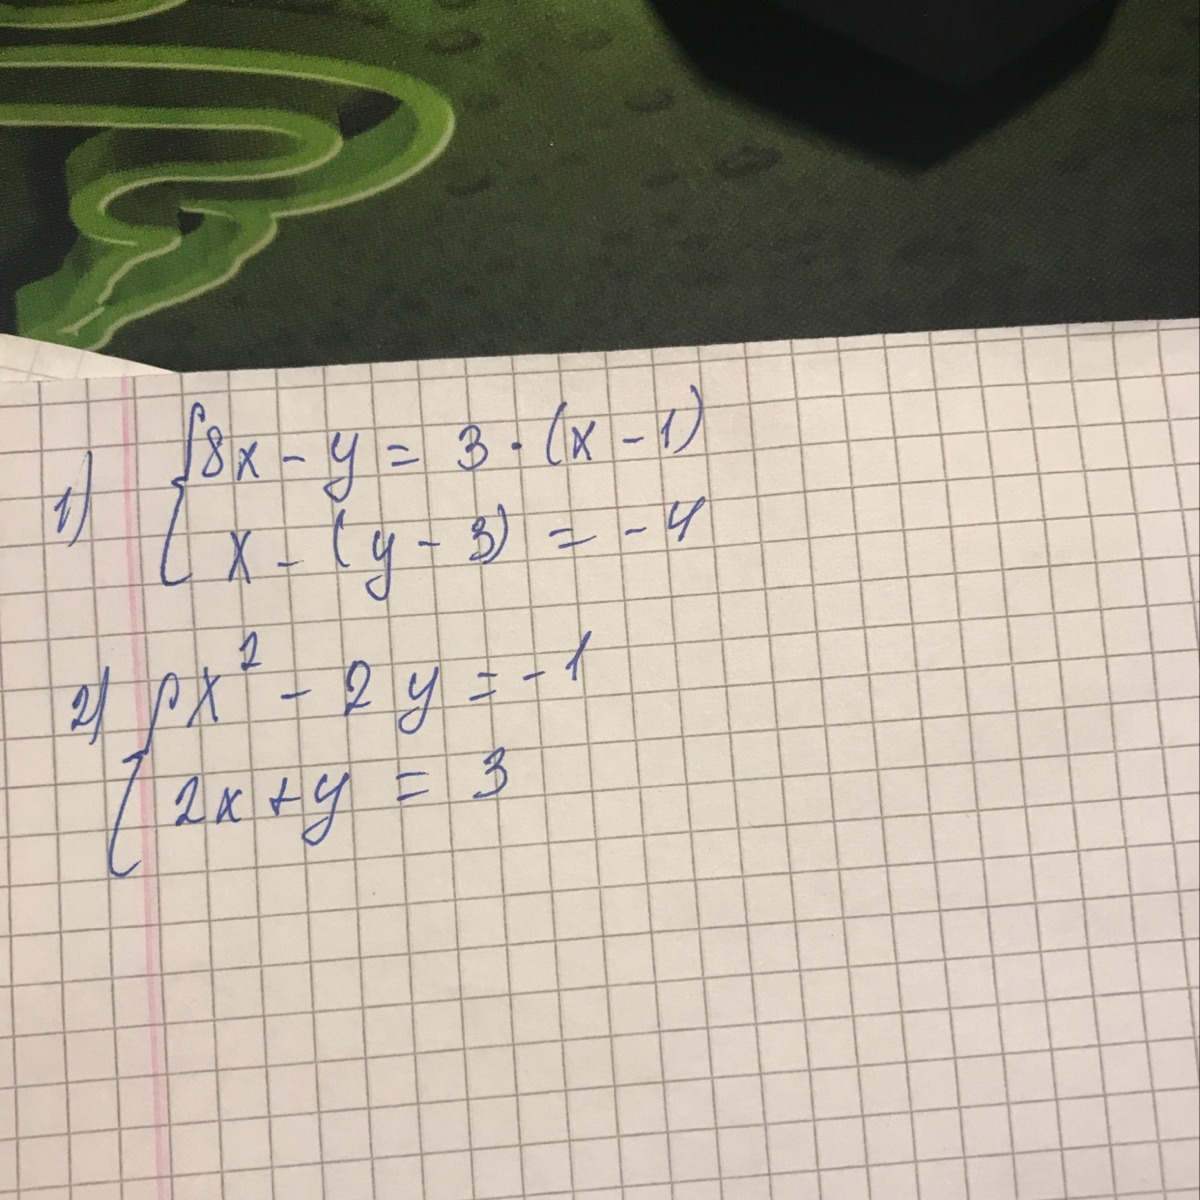 1) { 8x - y = 3 · (x - 1)
x - (y - 3) = - 4
2) { x² - 2y = - 1
2x + y = 3